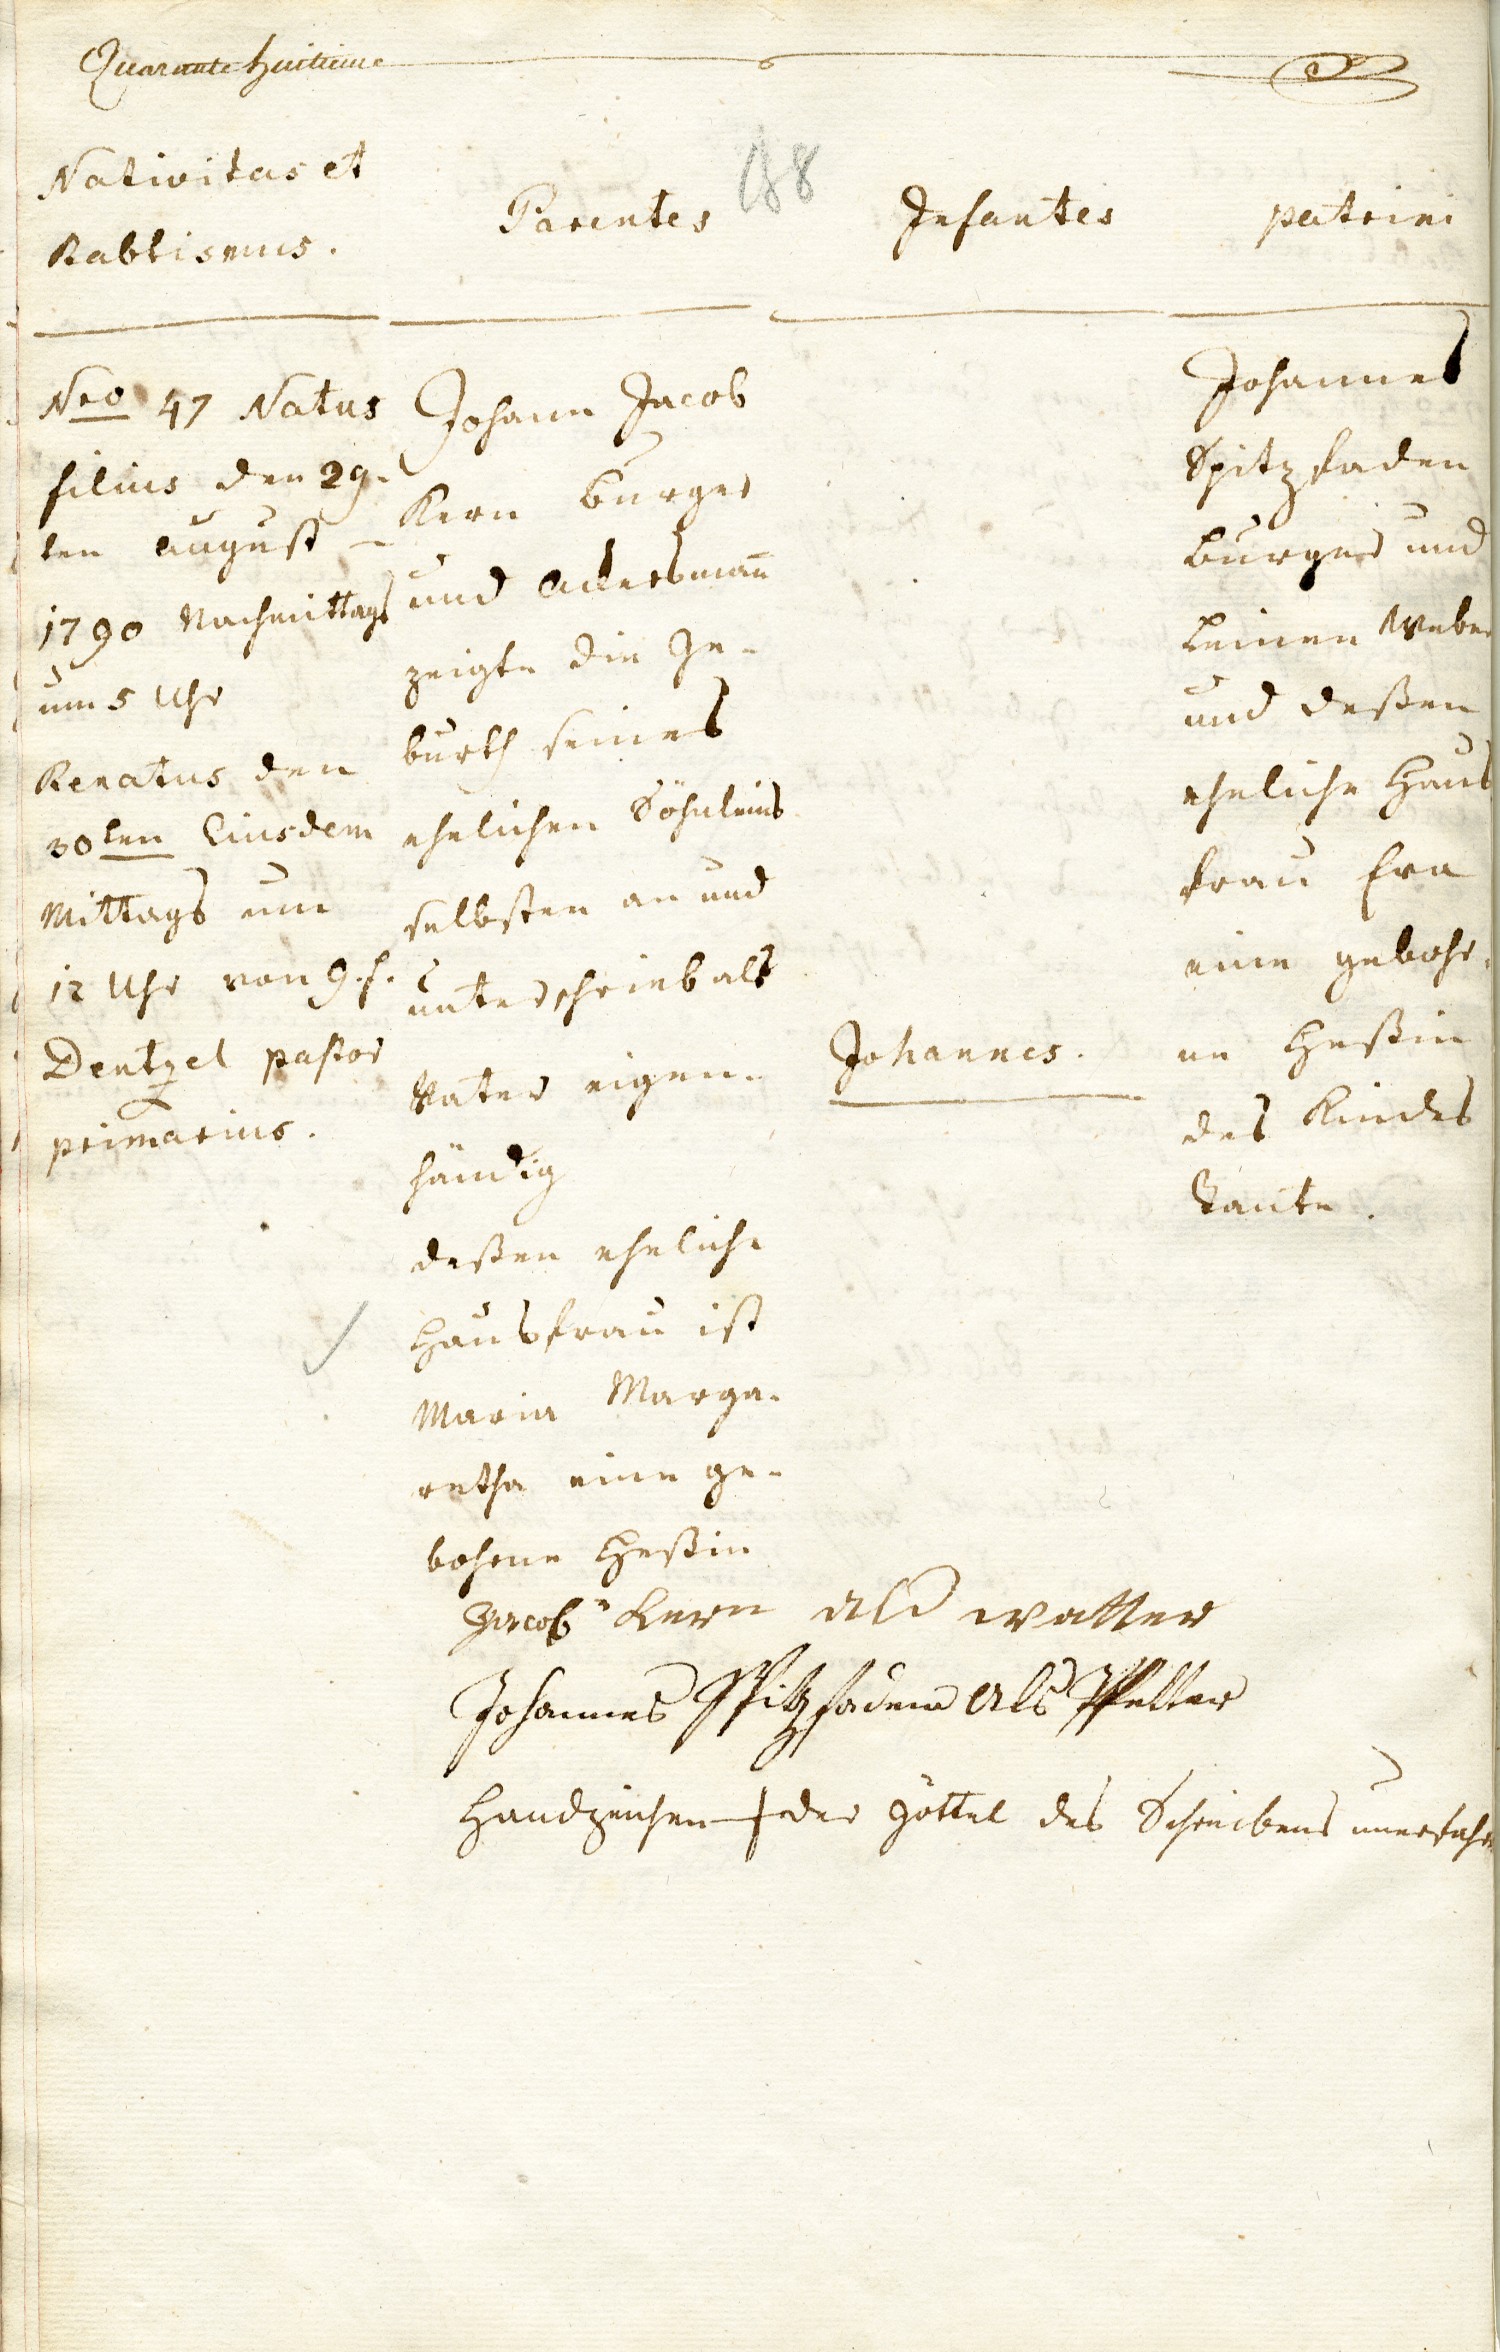 Quarante huitieme
48
Nativitas et
Babtismus.
Parentes
Infantes
patrini
Nro 47 Natus
filius den 29-
ten august
1790 Nachmittags
um 5 Uhr
Renatus den
30ten Eiusdem
Mittags um
12 Uhr von g. f.
Dentzel pastor
primarius.
Johann Jacob
Kern burger
und Ackersmañ
zeigte die Ge-
burth seines
ehelichen Söhnleins
selbsten an und
unterschrieb als
Vater eigen-
händig
deßen eheliche
Hausfrau ist
Maria Marga-
retha eine ge-
bohrne Heßin
Johannes.
Johannes
Spitzfaden
burger und
Leinen Weber
und deßen
eheliche Haus
frau Eva
eine gebohr-
ne Heßin
des Kindes
Tante.
Jacob Kern als watter
Johannes Spitzfaden als Pfetter
Handzeichen + der Göttel des Schreibens unerfahr